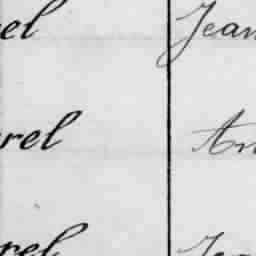 el Jean
rel An
rel Jea